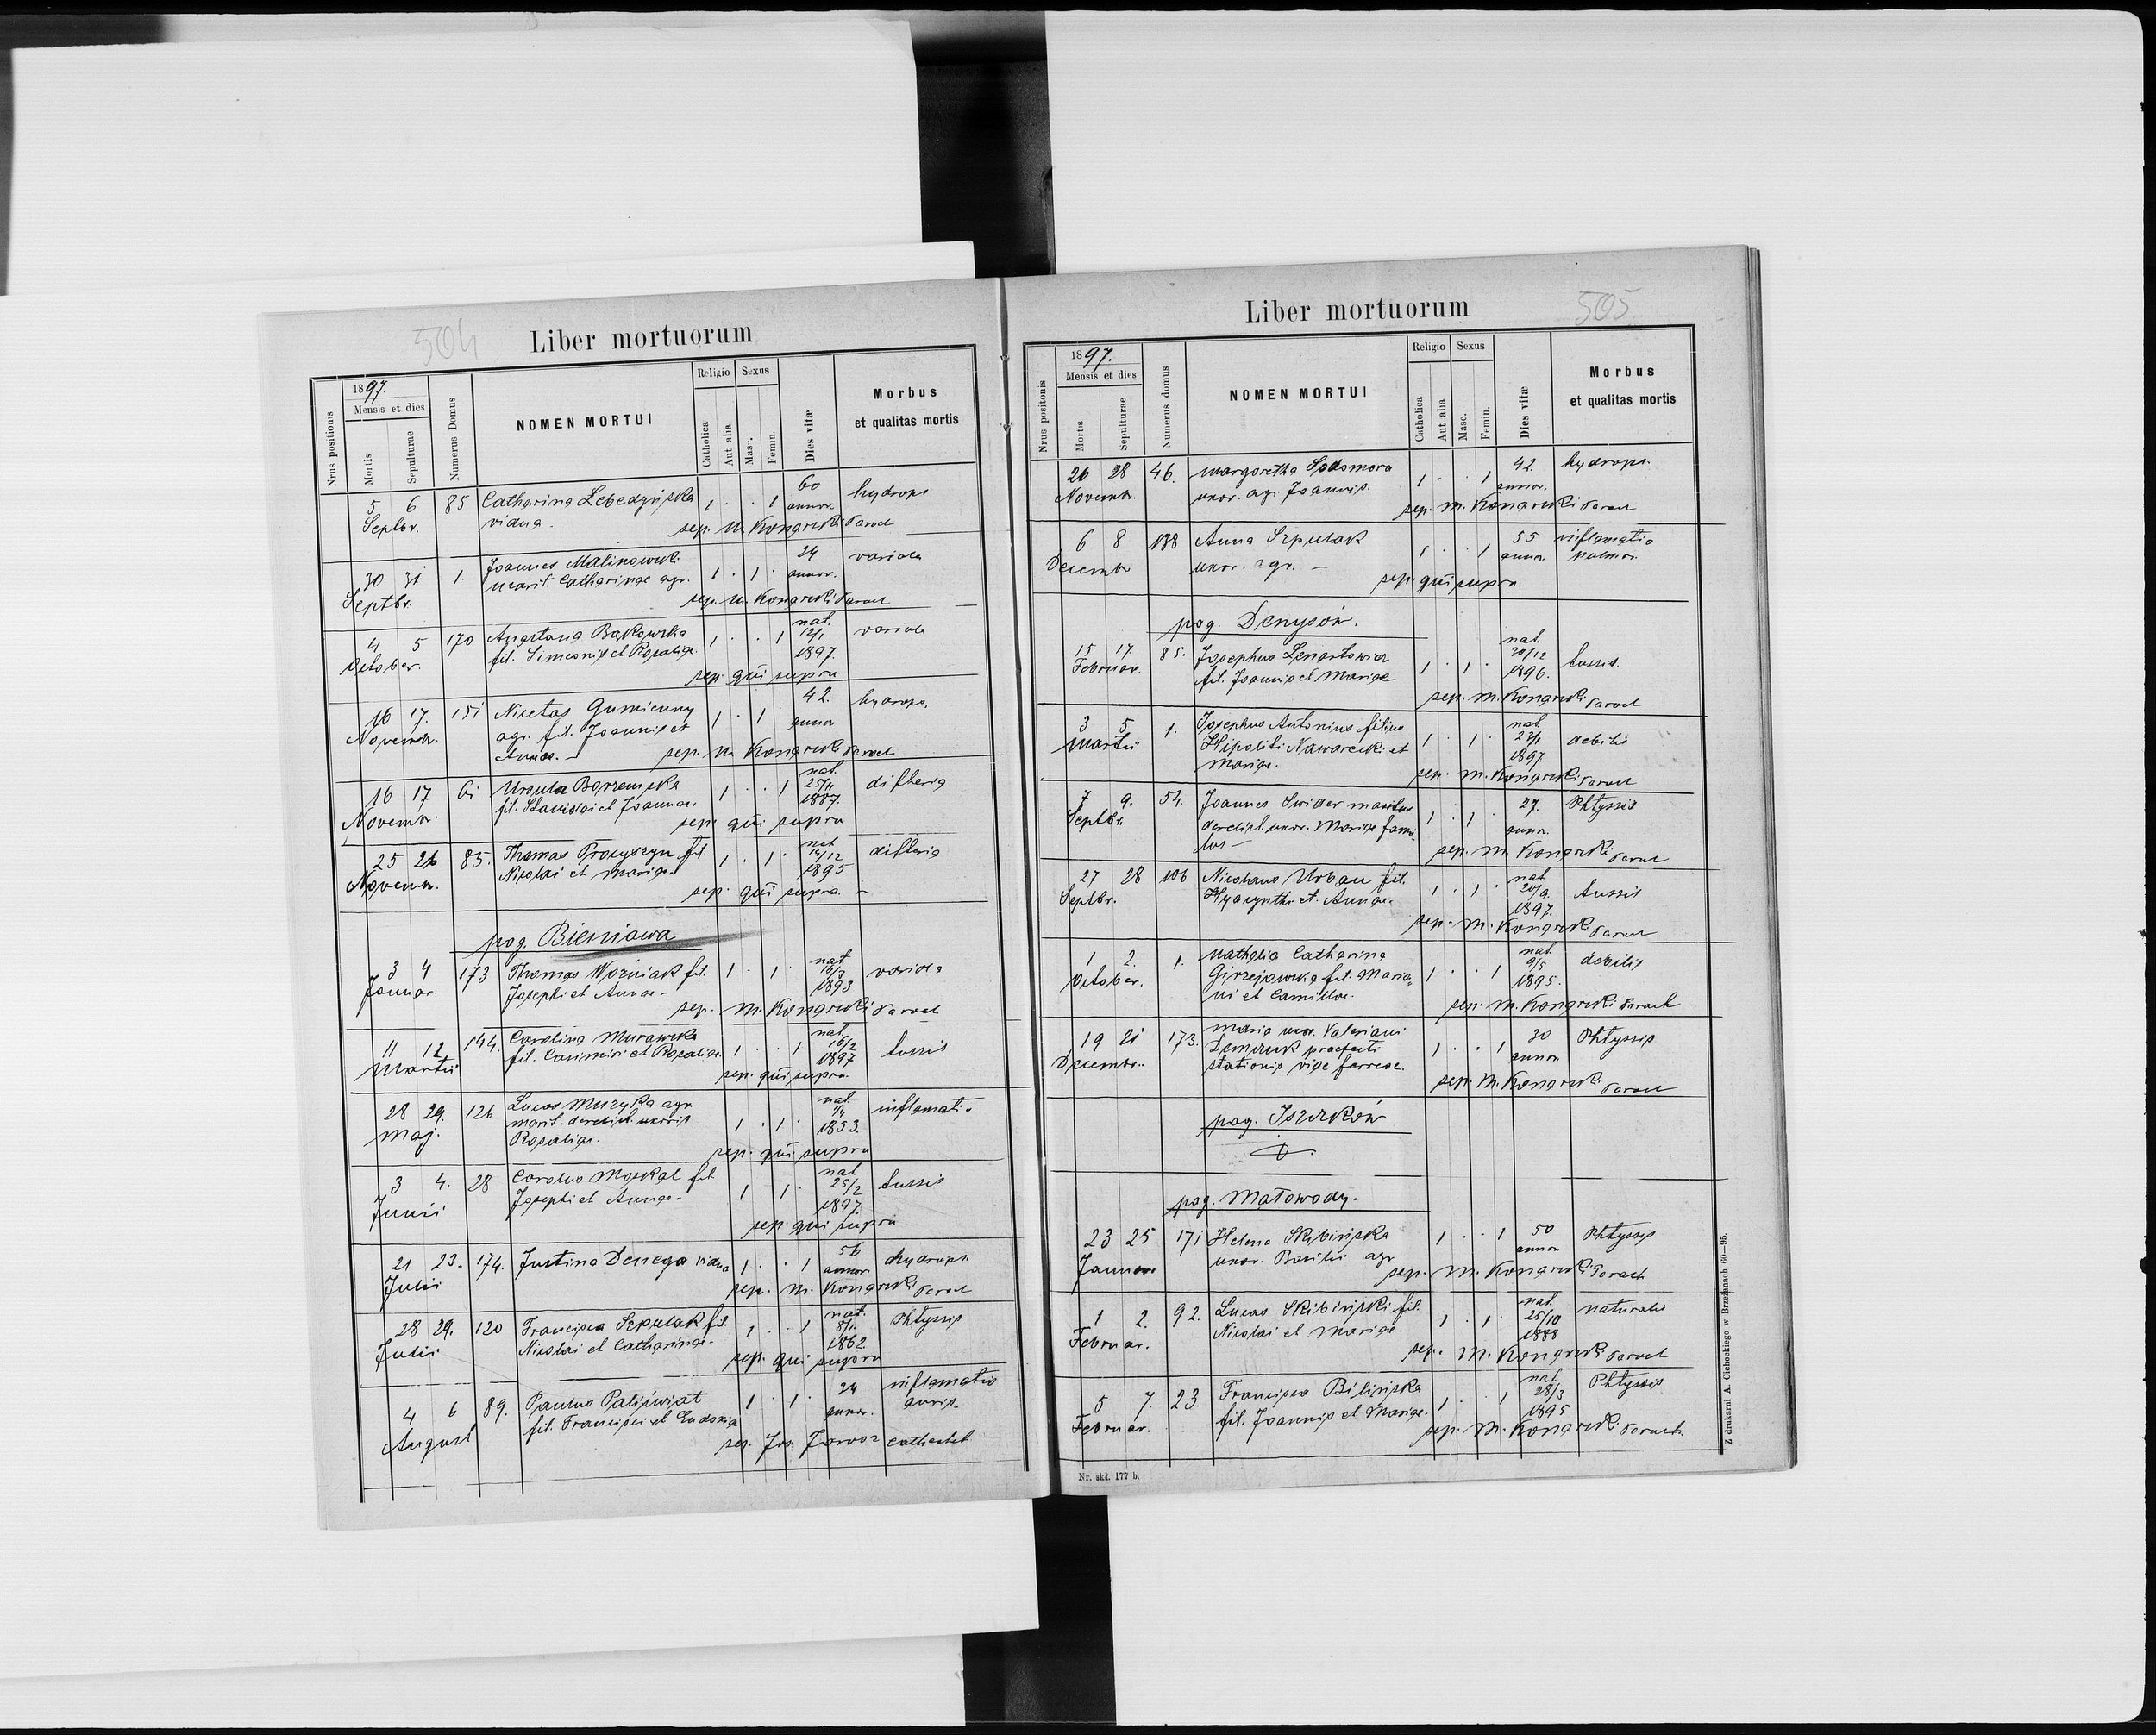 504
Liber mortuorum
Nrus positionis
1897.
Mensis et dies
Mortis
Sepulturae
Numerus Domus
NOMEN MORTUI
Religio
Catholica
Aut alia
Sexus
Masc.
Femin.
Dies vitæ
Morbus
et qualitas mortis
5 6 85 Catharina Lebedyńska 1 . . 1 60 hydrops
Septbr. vidua. annor.
sep. M. Konarski Paroch
30 31 1. Joannes Malinowski 1 . 1 . 24 variola
Septbr. marit. Catharinae agr. annor.
sep. M. Konarski Paroch
4 5 170 Anastasia Bąkowska 1 . . 1 nat. 12/1 variola
October. fil. Simeonis et Rosaliae. 1897.
sep. qui supra
16 17. 151 Nicetas Gumienny 1 . 1 42. hydrops.
Novembr. agr. fil. Joannis et annor
Annae. – sep. M. Konarski Paroch
16 17 61 Ursula Barzemska 1 . . 1 nat. 25/11 difteria
Novembr. fil. Stanislai et Joannae. 1887.
sep. qui supra
25 26 85. Thomas Procyszyn fil. 1 . 1 . nat 14/12 difteria
Novem. Nicolai et Mariae 1895
sep. qui supra. –
pag. Bieniawa
3 4 173 Thomas Woźniak fil. 1 . 1 . nat 16/3 variola
Januar. Josephi et Annae – 1893
sep. M. Konarski Paroch
11 12 144. Carolina Murawska 1 . . 1 nat. 16/2 tussis
Martii fil. Casimiri et Rosaliae. 1897
sep. qui supra.
28 29. 126 Lucas Muzyka agr. 1 . 1 . nat. 1/4 inflamatio
Maj. marit. derelict. uxoris 1853.
Rosaliae.
sep. qui supra
3 4. 28 Carolus Moskal fil 1 . 1 . nat. 25/2 tussis
Junii Josephi et Annae. 1897.
sep. qui supra
21 23. 174. Justina Denega vidua 1 . . 1 56 hydrops.
Julii annor.
sep. M. Konarski Paroch
28 29. 120 Francisca Szpulak fil. 1 . . 1 nat. 8/1. Phtyssis
Julii Nicolai et Catharinae. 1862
sep. qui supra
4 6 89. Paulus Paliświat 1 . 1 . 34 inflamatio
August fil. Francisci et Eudoxia annor. auris.
sep. Jos. Jawor Cathechet.
505
Liber mortuorum
Nrus positonis
1897.
Mensis et dies
Mortis
Sepulturae
Numerus domus
NOMEN MORTUI
Religio
Catholica
Aut alia
Sexus
Masc.
Femin.
Dies vitæ
Morbus
et qualitas mortis
26 28 46. Margaretha Sodomora 1 . . 1 42. hydrops.
Novembr. uxor. agr. Joannis. annor.
sep. M. Konarski Paroch
6 8 188 Anna Szpulak 1 . . 1 55 inflamatio
Decembr uxor. agr. – annor. pulmon.
sep. qui supra.
pag. Denysów.
15 17. 85. Josephus Lenartowicz 1 . 1 . nat. 30/12 tussis.
Februar. fil. Joannis et Mariae 1896.
sep. M. Konarski Paroch
3 5 1. Josephus Antonius filius 1 . 1 . nat. 23/1 debilis
Martii Hipoliti Nawarecki et 1897
Mariae.
sep. M. Konarski Paroch
7 9. 54. Joannes Swider maritus 1 . 1 . 27. Phtyssis
Septbr. derelict. uxor. Mariae famu- annor.
lus –
sep. M. Konarski Paroch
27 28 106 Nicolaus Urban fil. 1 . 1 . nat. 20/9. tussis
Septbr. Hyacynthi et Annae. 1897.
sep. M. Konarski Paroch
1 2. 1. Nathalia Catharina 1 . . 1 nat. 9/5 debilis
October. Girzejowska fil. Maria- 1895.
ni et Camillae.
sep. M. Konarski Paroch
19 21 173. Maria uxor. Valeriani 1 . . 1 30 Phtyssis
Decembr. Demczuk praefecti annor
stationis viae ferreae.
sep. M. Konarski Paroch
pag. Iszczków
pag. Małowody.
23 25 171 Helena Skibińska 1 . . 1 50 Phtyssis
Januar uxor. Basilii agr annor
sep. M. Konarski Paroch
1 2. 92. Lucas Skibiński fil. 1 . 1 . nat. 25/10 naturalis
Februar. Nicolai et Mariae. 1888
sep. M. Konarski Paroch
5 7. 23. Francisca Bilińska 1 . . 1 nat. 28/3 Phtyssis
Februar. fil. Joannis et Mariae. 1895
sep. M. Konarski Paroch.
Nr. skł. 177 b.
Z drukarni A. Cichockiego w Brzeżanach 60—95.